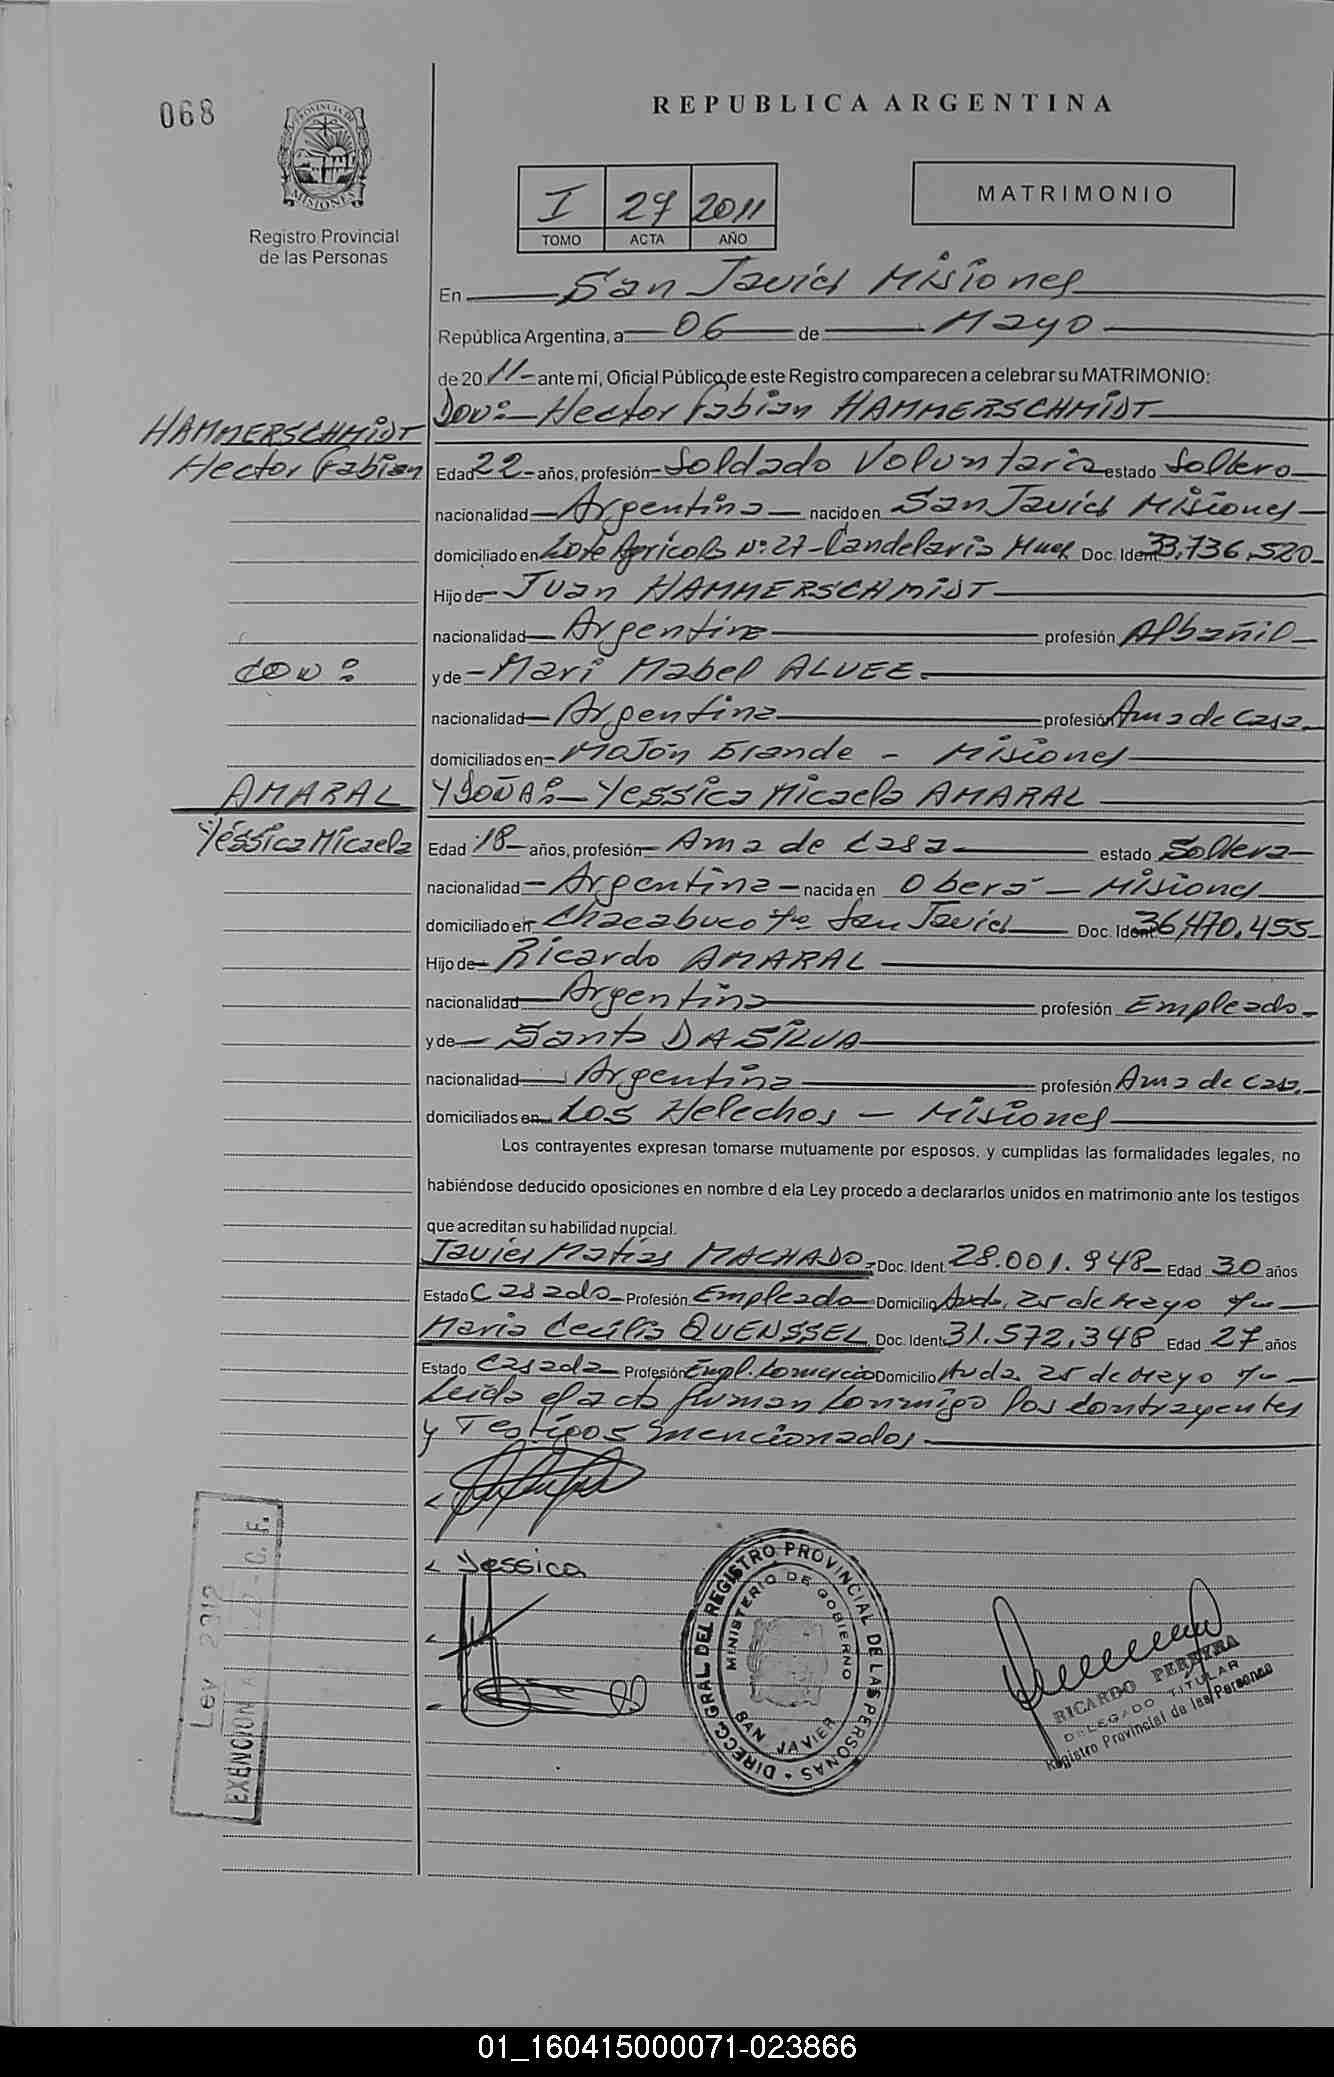 068
PROVINCIA DE
MISIONES
Registro Provincial
de las Personas
REPUBLICA ARGENTINA
I 27 2011
TOMO ACTA AÑO
MATRIMONIO
En San Javier Misiones
República Argentina, a 06 de Mayo
de 2011 ante mí, Oficial Público de este Registro comparecen a celebrar su MATRIMONIO:
HAMMERSCHMIDT
Hector Fabian
DON: Hector Fabian HAMMERSCHMIDT
Edad 22 años, profesión Soldado Voluntario estado Soltero
nacionalidad Argentina nacido en San Javier Misiones
domiciliado en Lote Agricola Nº 27 - Candelaria Mnes Doc. Ident. 33.736.520
Hijo de Juan HAMMERSCHMIDT
nacionalidad Argentina profesión Albañil
CON:
y de Mari Mabel ALVEZ
nacionalidad Argentina profesión Ama de Casa
domiciliados en Mojón Grande - Misiones
AMARAL
Yessica Micaela
Y DOÑA: Yessica Micaela AMARAL
Edad 18 años, profesión Ama de Casa estado Soltera
nacionalidad Argentina nacida en Oberá - Misiones
domiciliado en Chacabuco San Javier Doc. Ident. 36.470.455
Hijo de Ricardo AMARAL
nacionalidad Argentina profesión Empleado
y de Santa DA SILVA
nacionalidad Argentina profesión Ama de Casa
domiciliados en Los Helechos - Misiones
Los contrayentes expresan tomarse mutuamente por esposos, y cumplidas las formalidades legales, no
habiéndose deducido oposiciones en nombre d ela Ley procedo a declararlos unidos en matrimonio ante los testigos
que acreditan su habilidad nupcial.
Javier Matías MACHADO Doc. Ident. 28.001.948 Edad 30 años
Estado Casado Profesión Empleado Domicilio Avda. 25 de Mayo
Maria Cecilia QUENSSEL Doc. Ident. 31.572.348 Edad 27 años
Estado Casada Profesión Empl. Comercio Domicilio Avda. 25 de Mayo
Leida el acta firman conmigo los contrayentes
y Testigos mencionados
Yessica
Ley 2312
EXENCION
DIRECC. GRAL DEL REGISTRO PROVINCIAL DE LAS PERSONAS
MINISTERIO DE GOBIERNO
SAN JAVIER
RICARDO PEREYRA
DELEGADO TITULAR
Registro Provincial de las Personas
01_160415000071-023866